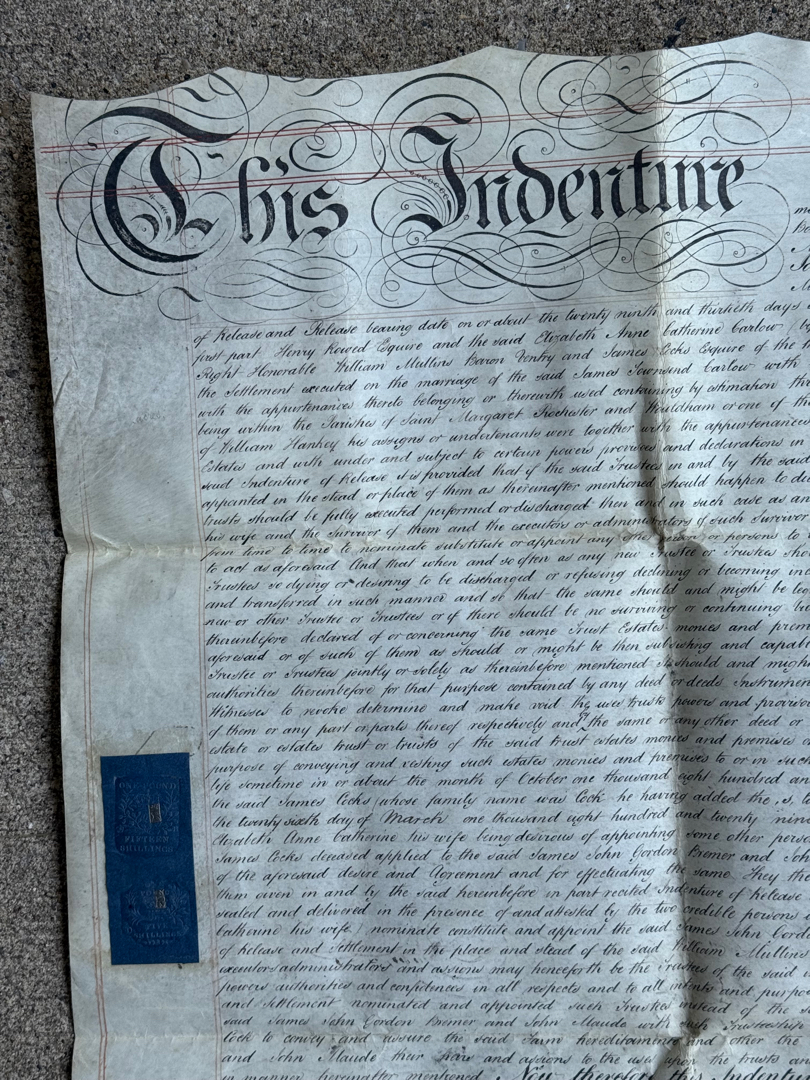 This Indenture
of Release and Release bearing date on or about the twenty ninth and thirtieth days
first part Henry Rowed Esquire and the said Elizabeth Anne Catherine Carlow
Right Honorable William Mullins Baron Ventry and James Cocks Esquire of the
the Settlement executed on the marriage of the said James Townsend Carlow with
with the appurtenances thereto belonging or therewith used containing by estimation
being within the Parishes of Saint Margaret Rochester and Wouldham or one of
of William Hankey his assigns or undertenants were together with the appurtenances
Estates and with under and subject to certain powers provisoes and declarations in
said Indenture of Release it is provided that if the said Trustees in and by the said
appointed in the stead or place of them as thereinafter mentioned should happen to
trusts should be fully executed performed or discharged then and in such case as
his wife and the survivor of them and the executors or administrators of such Survivor
from time to time to nominate substitute or appoint any other person or persons to
to act as aforesaid And that when and so often as any new Trustee or Trustees
Trustees so dying or desiring to be discharged or refusing declining or becoming
and transferred in such manner and so that the same should and might be
new or other Trustee or Trustees or if there should be no surviving or continuing
thereinbefore declared of or concerning the same Trust Estates monies and
aforesaid or of such of them as should or might be then subsisting and
Trustee or Trustees jointly or solely as thereinbefore mentioned should and
authorities thereinbefore for that purpose contained by any deed or deeds Instrument
Witnesses to revoke determine and make void the uses trusts powers and
of them or any part or parts thereof respectively and the same or any other deed or
estate or estates trust or trusts of the said trust estates monies and premises
purpose of conveying and vesting such estates monies and premises to or in such
life sometime in or about the month of October one thousand eight hundred
the said James Cocks whose family name was Cock he having added the s
the twenty sixth day of March one thousand eight hundred and twenty nine
Elizabeth Anne Catherine his wife being desirous of appointing some other
James Cocks deceased applied to the said James John Gordon Bremer and
of the aforesaid desire and Agreement and for effectuating the same They
them given in and by the said hereinbefore in part recited Indenture of Release
sealed and delivered in the presence of and attested by the two credible persons
Catherine his wife nominate constitute and appoint the said James John
of release and settlement in the place and stead of the said William Mullins
executors administrators and assigns may henceforth be the Trustees of the said
powers authorities and confidences in all respects and to all intents and
and settlement nominated and appointed such Trustees instead of the
said James John Gordon Bremer and John Maude with such Trusteeship
Cock to convey and assure the said Farm hereditaments and other the
and John Maude their heirs and assigns to the uses upon the trusts
in manner hereinafter mentioned Now therefore this Indenture
ONE POUND
FIFTEEN
SHILLINGS
FIVE
SHILLINGS